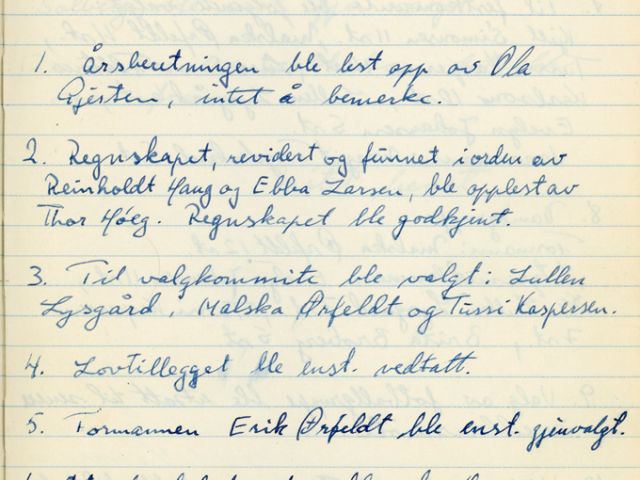 1. Årsberetningen ble lest opp av Ola
Gjesten, intet å bemerke.
2. Regnskapet, revidert og funnet i orden av
Reinholdt Haug og Ebba Larsen, ble opplest av
Thor Høeg. Regnskapet ble godkjent.
3. Til valgkommite ble valgt: Lullen
Lysgård, Malska Ørfeldt og Tussi Kaspersen.
4. Lovtillegget ble enst. vedtatt.
5. Formannen Erik Ørfeldt ble enst. gjenvalgt.